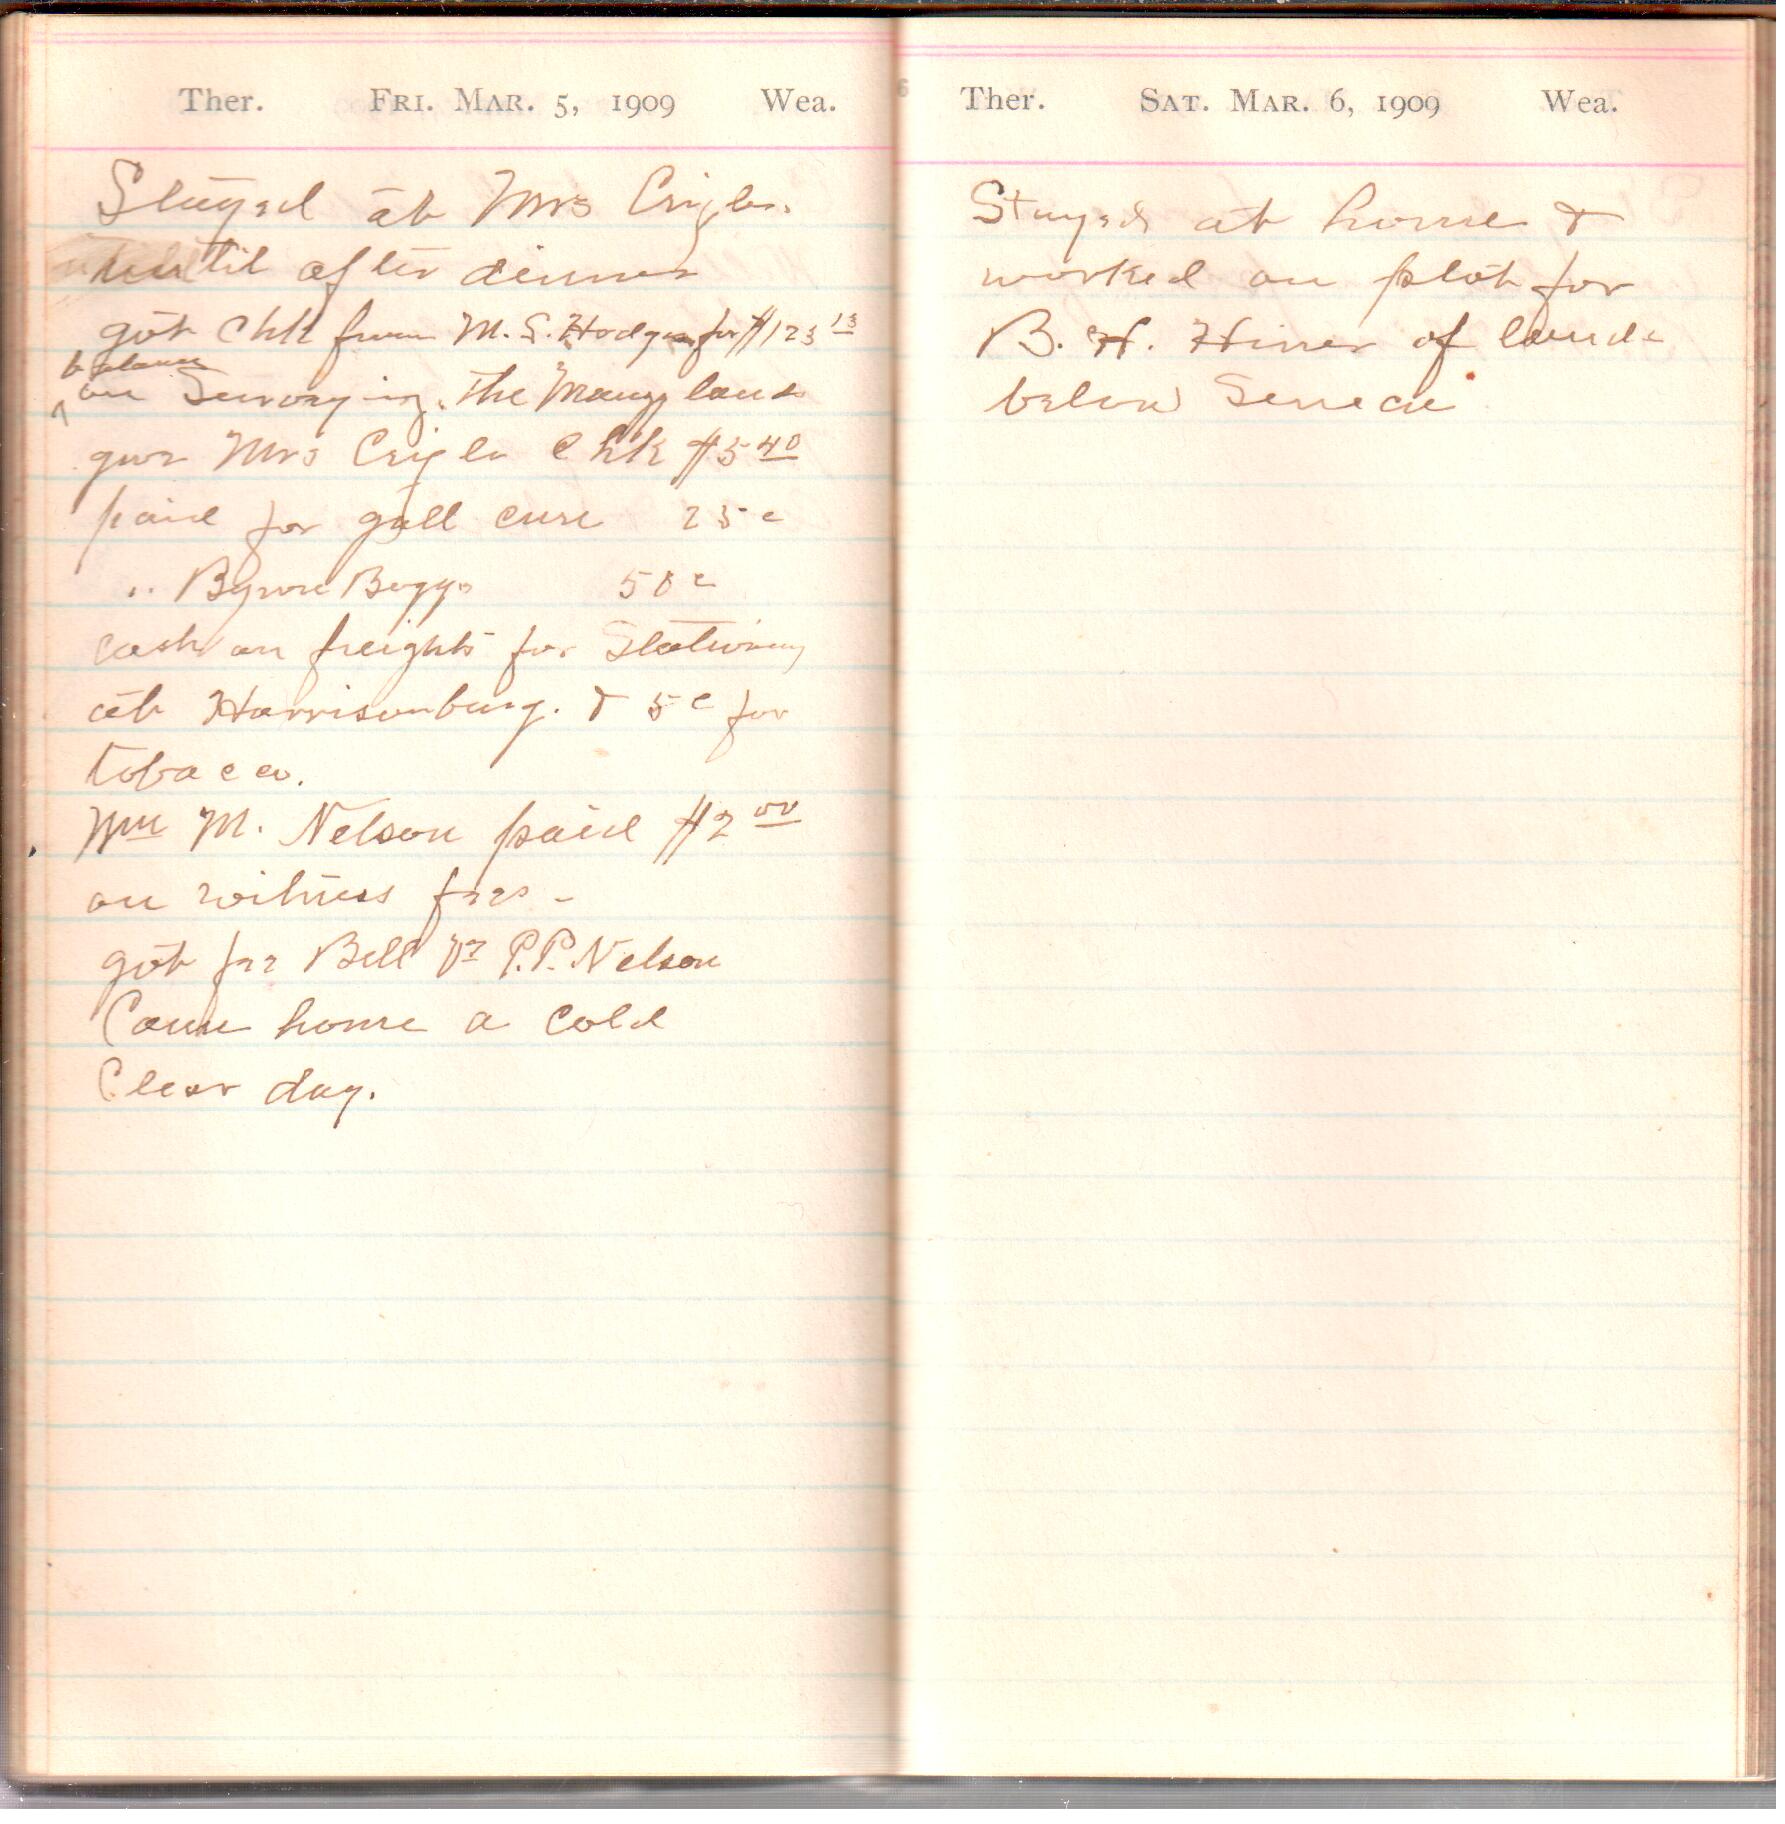 Ther. FRI. MAR. 5, 1909 Wea.
Stayed at Mrs Crigler.
until after dinner
got Chk from M. S. Hodges for $123 13
balance
on Surveying. the Maury lands
give Mrs Crigler Chk $5 40
paid for gall cure 25 c
" Byron Boggs 50 c
cash on freights for Stationary
at Harrisonburg. & 5 c for
tobacco.
Wm M. Nelson paid $2 00
on witness fees -
got fee Bill vs P.P. Nelson
Came home a cold
Clear day.
Ther. SAT. MAR. 6, 1909 Wea.
Stayed at home &
worked on plot for
B. H. Hiner of lands
below Seneca